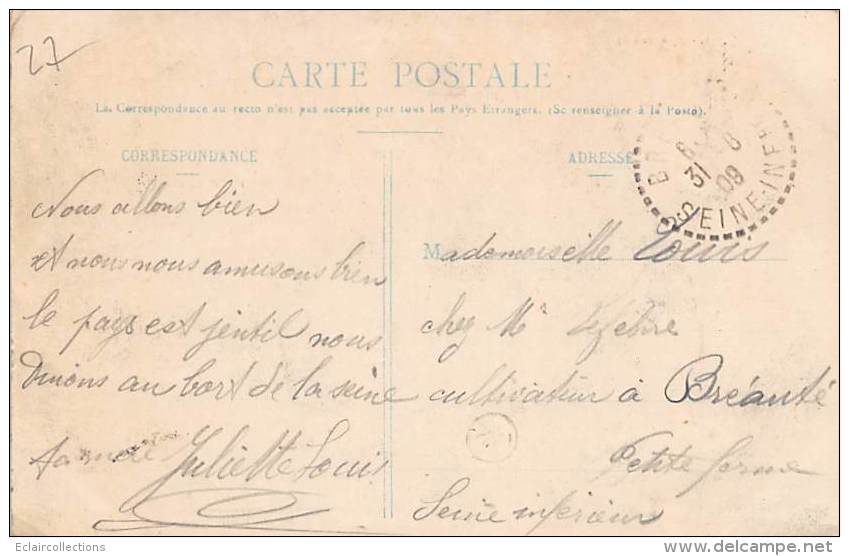 27
CARTE POSTALE
La Correspondance au recto n'est pas acceptée par tous les Pays Etrangers. (Se renseigner à la Poste).
CORRESPONDANCE
Nous allons bien
et nous nous amusons bien
le pays est jentil nous
Dinions au bort de la seine
ta mere Juliette Louis
ADRESSE
Mademoiselle Louis
chez Mr Lefebvre
cultivateur à Bréauté
Petite ferme
Seine inferieur
6
31 8
09
SEINE-INFRE
Eclaircollections
www.delcampe.net